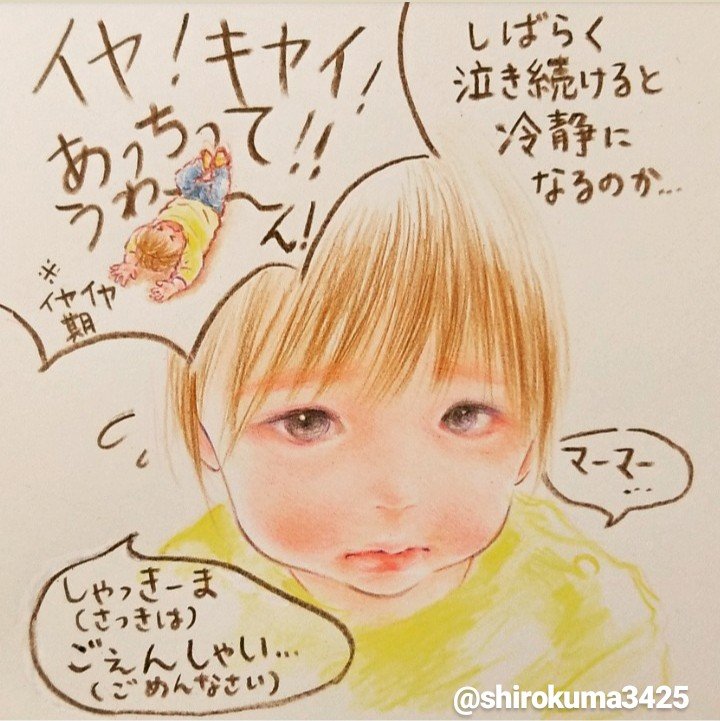 イヤ！キヤイ！
あっちって！！
うわ〜〜ん！
※
イヤイヤ
期
しばらく
泣き続けると
冷静に
なるのか…
マーマー
…
しゃっきーま
（さっきは）
ごえんしゃい…
（ごめんなさい）
@shirokuma3425